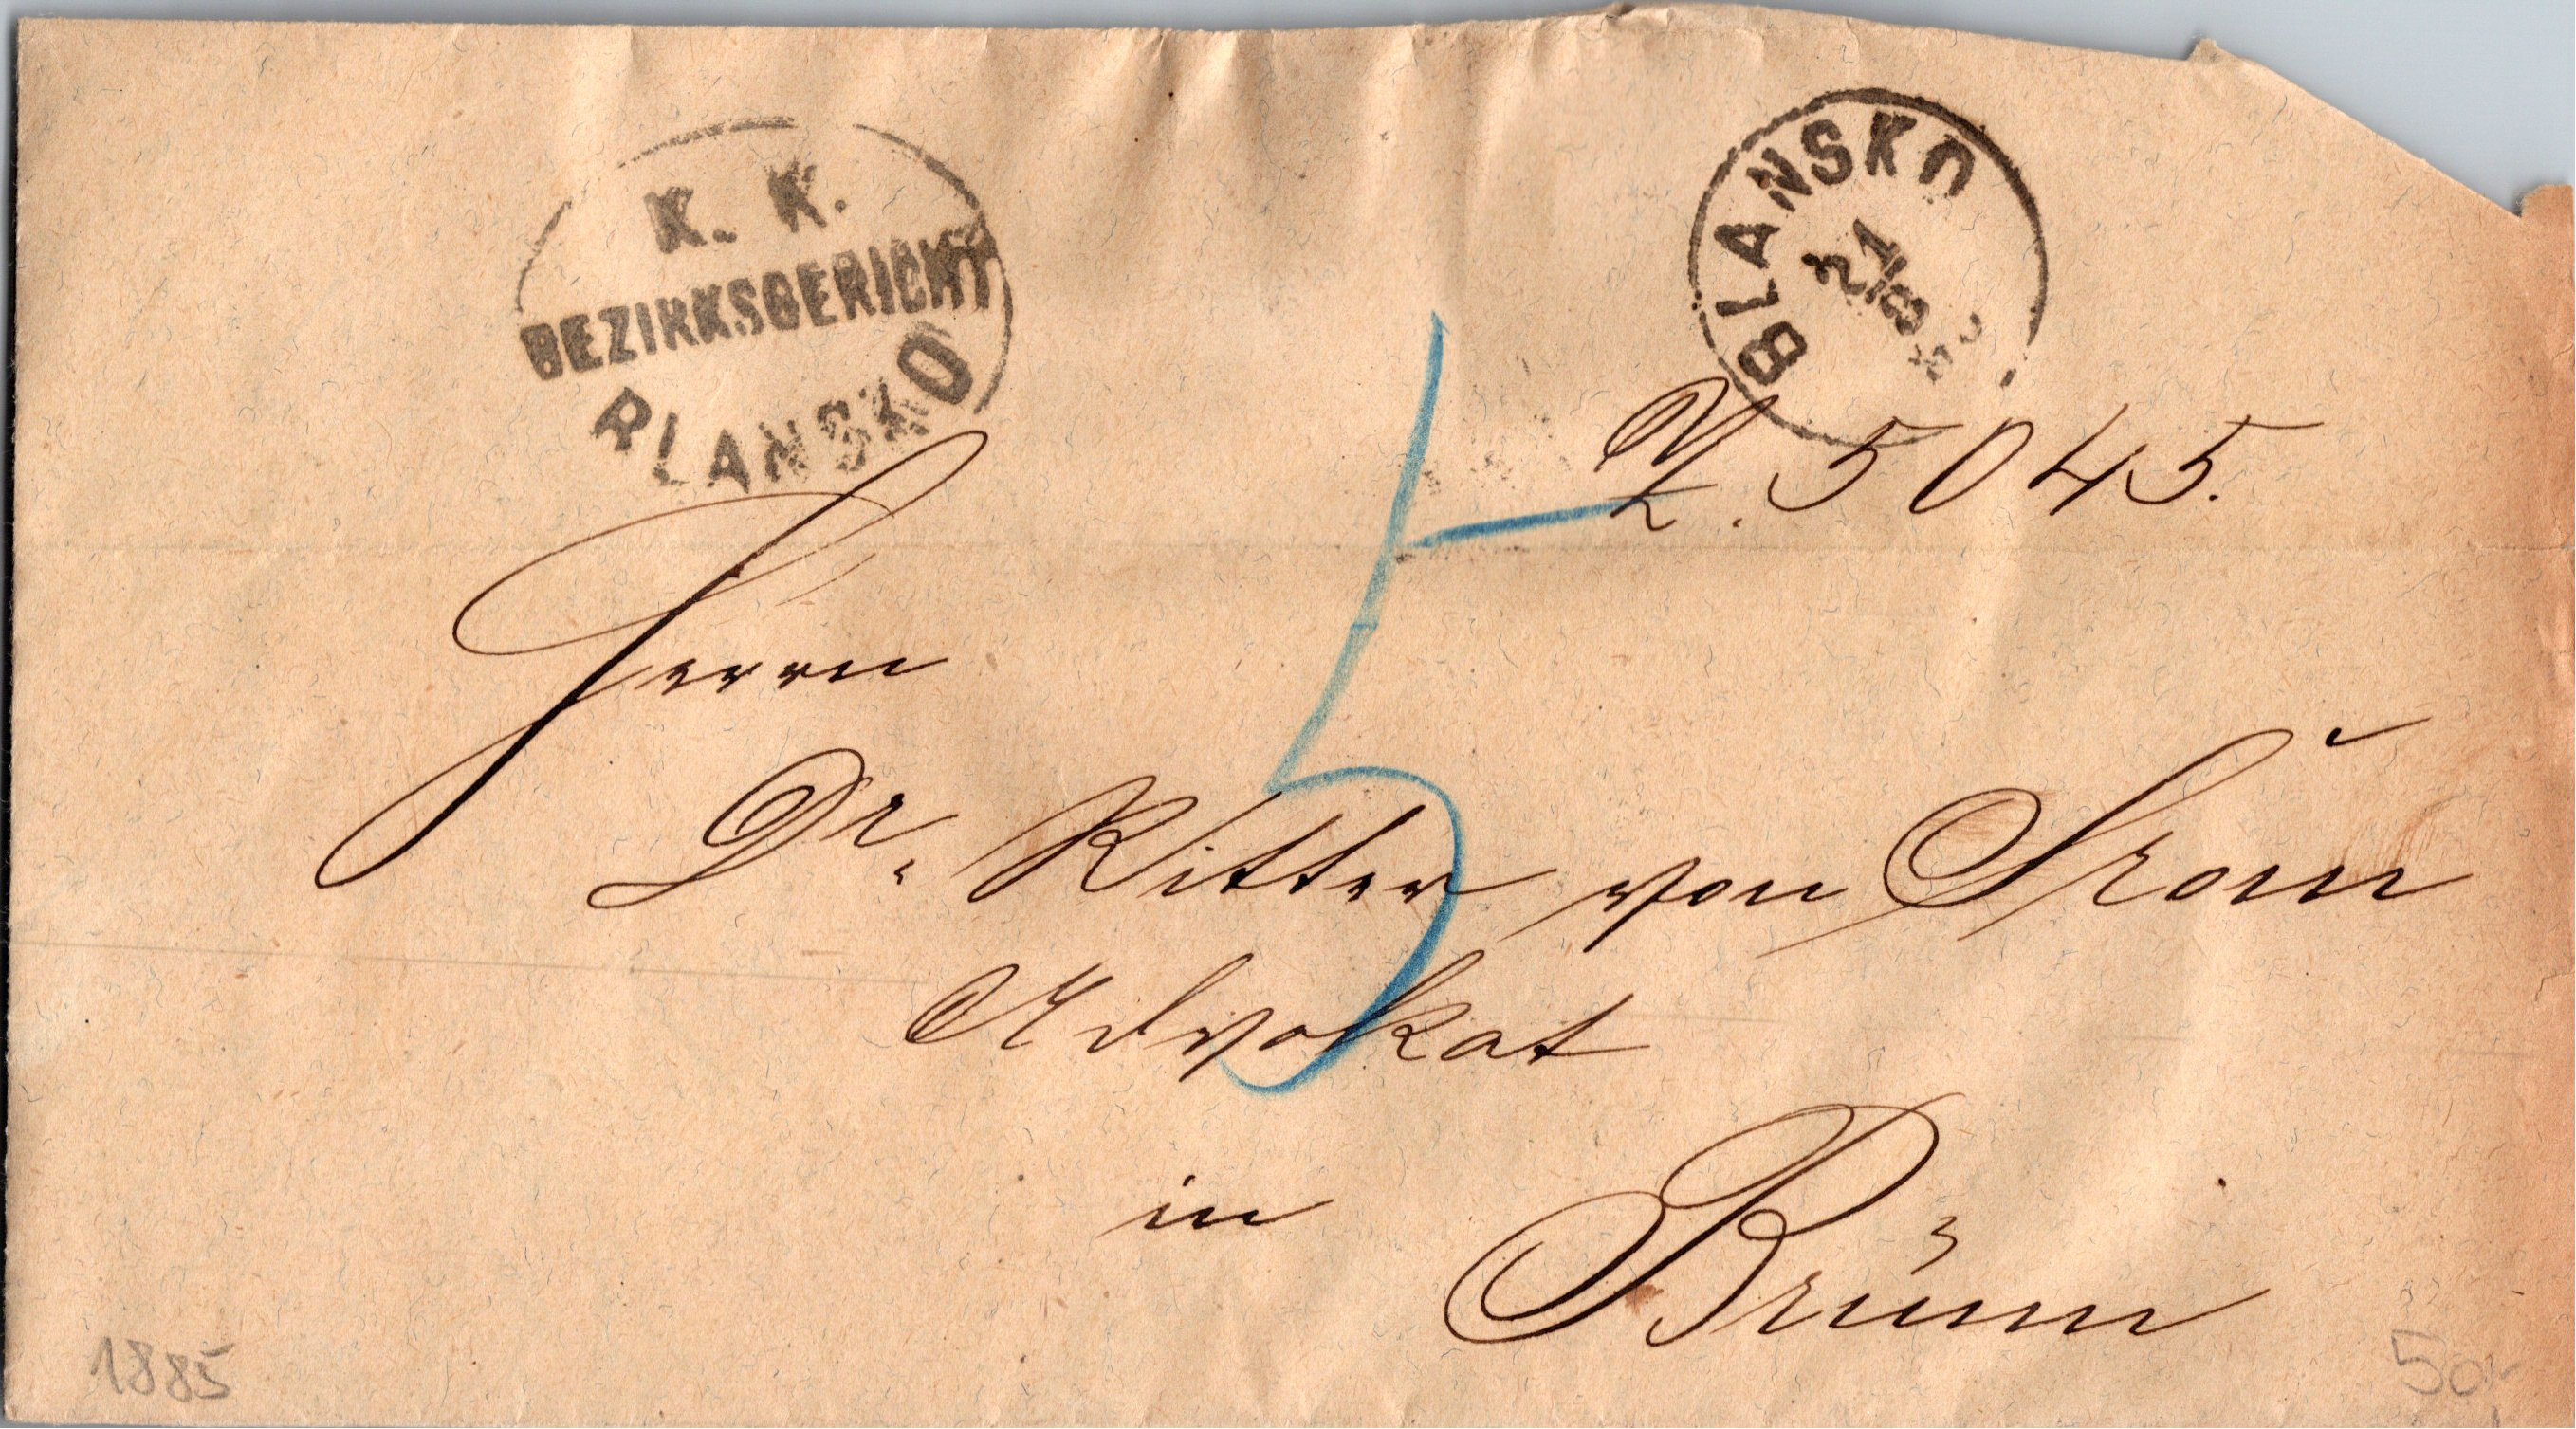 K. K.
BEZIRKSGERICHT
BLANSKO
BLANSKO
21/8
Z. 5045.
5
Herrn
Dr. Ritter von Šrom
Advokat
in
Brünn
1885
50,-